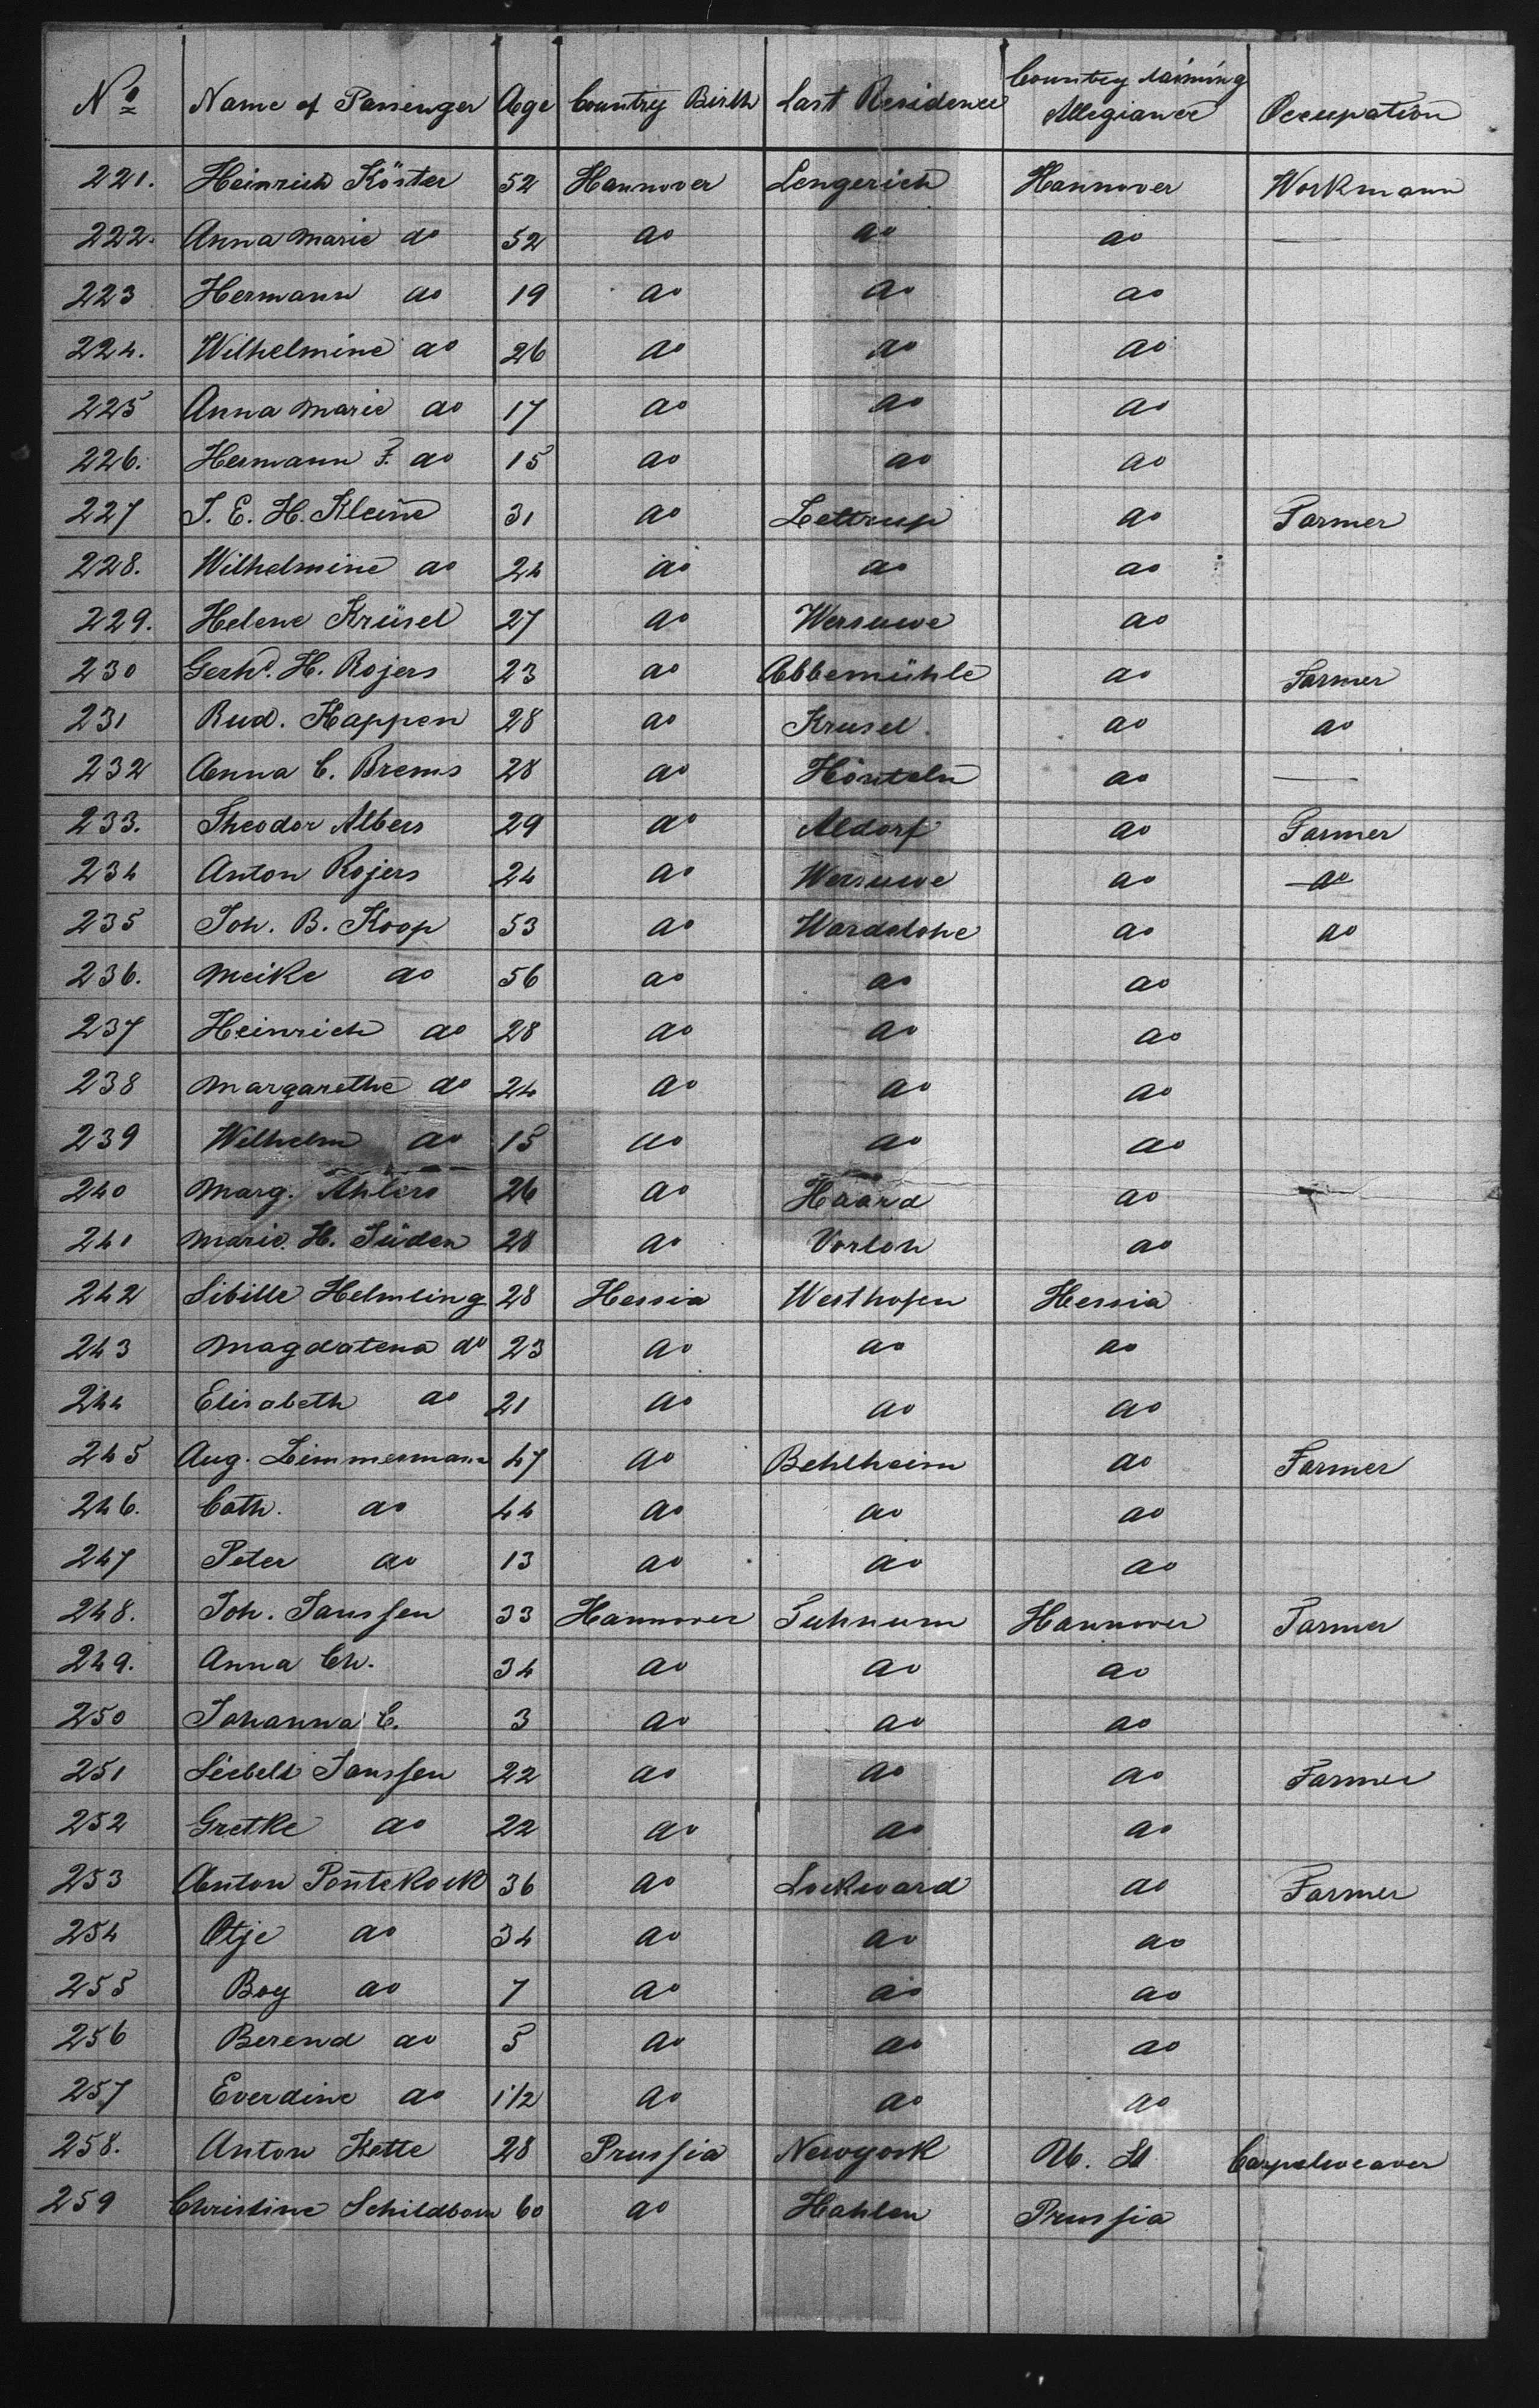 No Name of Passenger Age Country Birth Last Residence Country claiming Allegiance Occupation
221. Heinrich Köster 52 Hannover Lengerich Hannover Workmann
222. Anna Marie do 52 do do do —
223 Hermann do 19 do do do
224. Wilhelmine do 26 do do do
225 Anna Marie do 17 do do do
226. Hermann F. do 15 do do do
227 J. E. H. Kleine 31 do Lettrup do Farmer
228. Wilhelmine do 24 do do do
229. Helene Krüsel 27 do Wersuwe do
230 Gerhd. H. Rojers 23 do Abbemühle do Farmer
231 Rud. Happen 28 do Krusel do do
232 Anna C. Brems 28 do Hönteln do —
233. Theodor Albers 29 do Aldorf do Farmer
234 Anton Rojers 24 do Wersuwe do do
235 Joh. B. Koop 53 do Wardelohe do do
236. Meike do 56 do do do
237 Heinrich do 28 do do do
238 Margarethe do 24 do do do
239 Wilhelm do 15 do do do
240 Marg. Ahlers 26 do Haard do
241 Marie. H. Süden 28 do Vorloh do
242 Sibille Helmling 28 Hessia Westhofen Hessia
243 Magdatena do 23 do do do
244 Elisabeth do 21 do do do
245 Aug. Zimmermann 47 do Behlheim do Farmer
246. Cath. do 44 do do do
247 Peter do 13 do do do
248. Joh. Janssen 33 Hannover Suhnum Hannover Farmer
249. Anna Ch. 34 do do do
250 Johanna C. 3 do do do
251 Siebelt Janssen 22 do do do Farmer
252 Gretke do 22 do do do
253 Anton Pontekock 36 do Lockward do Farmer
254 Otje do 34 do do do
255 Boy do 7 do do do
256 Berend do 5 do do do
257 Everdine do 1 1/2 do do do
258. Anton Kette 28 Prussia Newyork U. St Carpetweaver
259 Christine Schildborn 60 do Hahlen Prussia